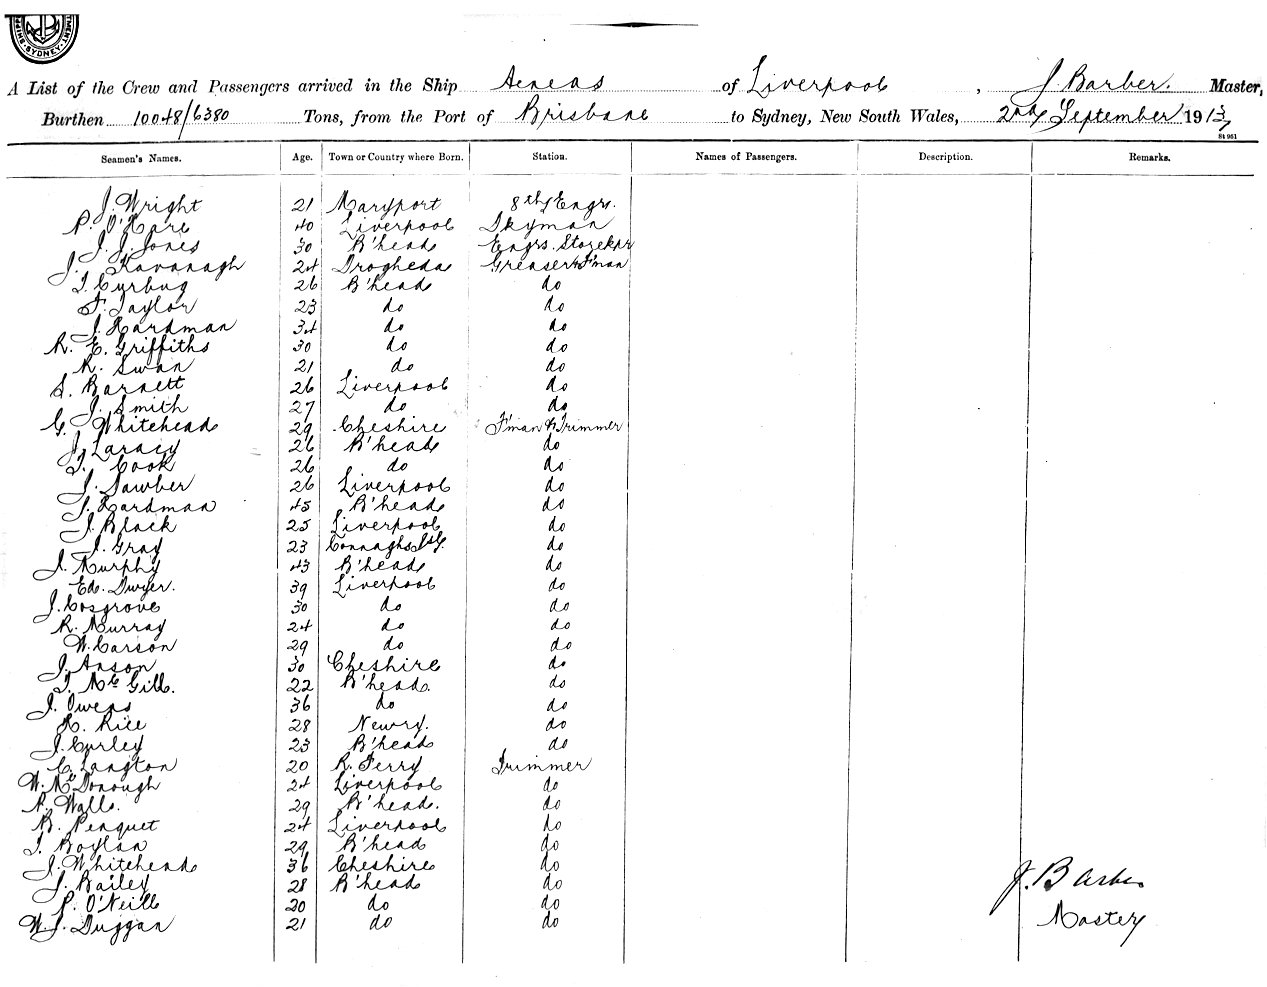 SYDNEY
A List of the Crew and Passengers arrived in the Ship Aeneas of Liverpool, J. Barber. Master,
Burthen 10048/6380 Tons, from the Port of Brisbane to Sydney, New South Wales, 2nd September 1913
St 961
Seamen's Names. Age. Town or Country where Born. Station. Names of Passengers. Description. Remarks.
J. Wright 21 Maryport 8th Engr.
P. O'Hare 40 Liverpool Dkyman
J. J. Jones 30 B'head Engrs. Storekpr
J. Kavanagh 24 Drogheda Greaser & F'man
T. Curbug 26 B'head do
F. Taylor 23 do do
J. Hardman 34 do do
R. E. Griffiths 30 do do
R. Swan 21 do do
S. Barnett 26 Liverpool do
J. Smith 27 do do
G. Whitehead 29 Cheshire F'man & Trimmer
J. Laracy 26 B'head do
T. Cook 26 do do
J. Sawber 26 Liverpool do
J. Hardman 45 B'head do
J. Black 25 Liverpool do
J. Gray 23 do
J. Murphy 43 B'head do
Ed. Dwyer. 39 Liverpool do
J. Cosgrove 30 do do
R. Murray 24 do do
W. Carson 29 do do
J. Anson 30 Cheshire do
T. McGill. 22 B'head. do
J. Owens 36 do do
H. Rice 28 Newry. do
J. Curley 23 B'head do
C. Langton 20 R. Ferry Trimmer
W. McDonough 24 Liverpool do
P. Walls. 29 B'head. do
B. Penquet 24 Liverpool do
T. Boylan 29 B'head do
J. Whitehead 36 Cheshire do
J. Bailey 28 B'head do
P. O'Neill 30 do do
W. J. Duggan 21 do do
J. Barber
Master